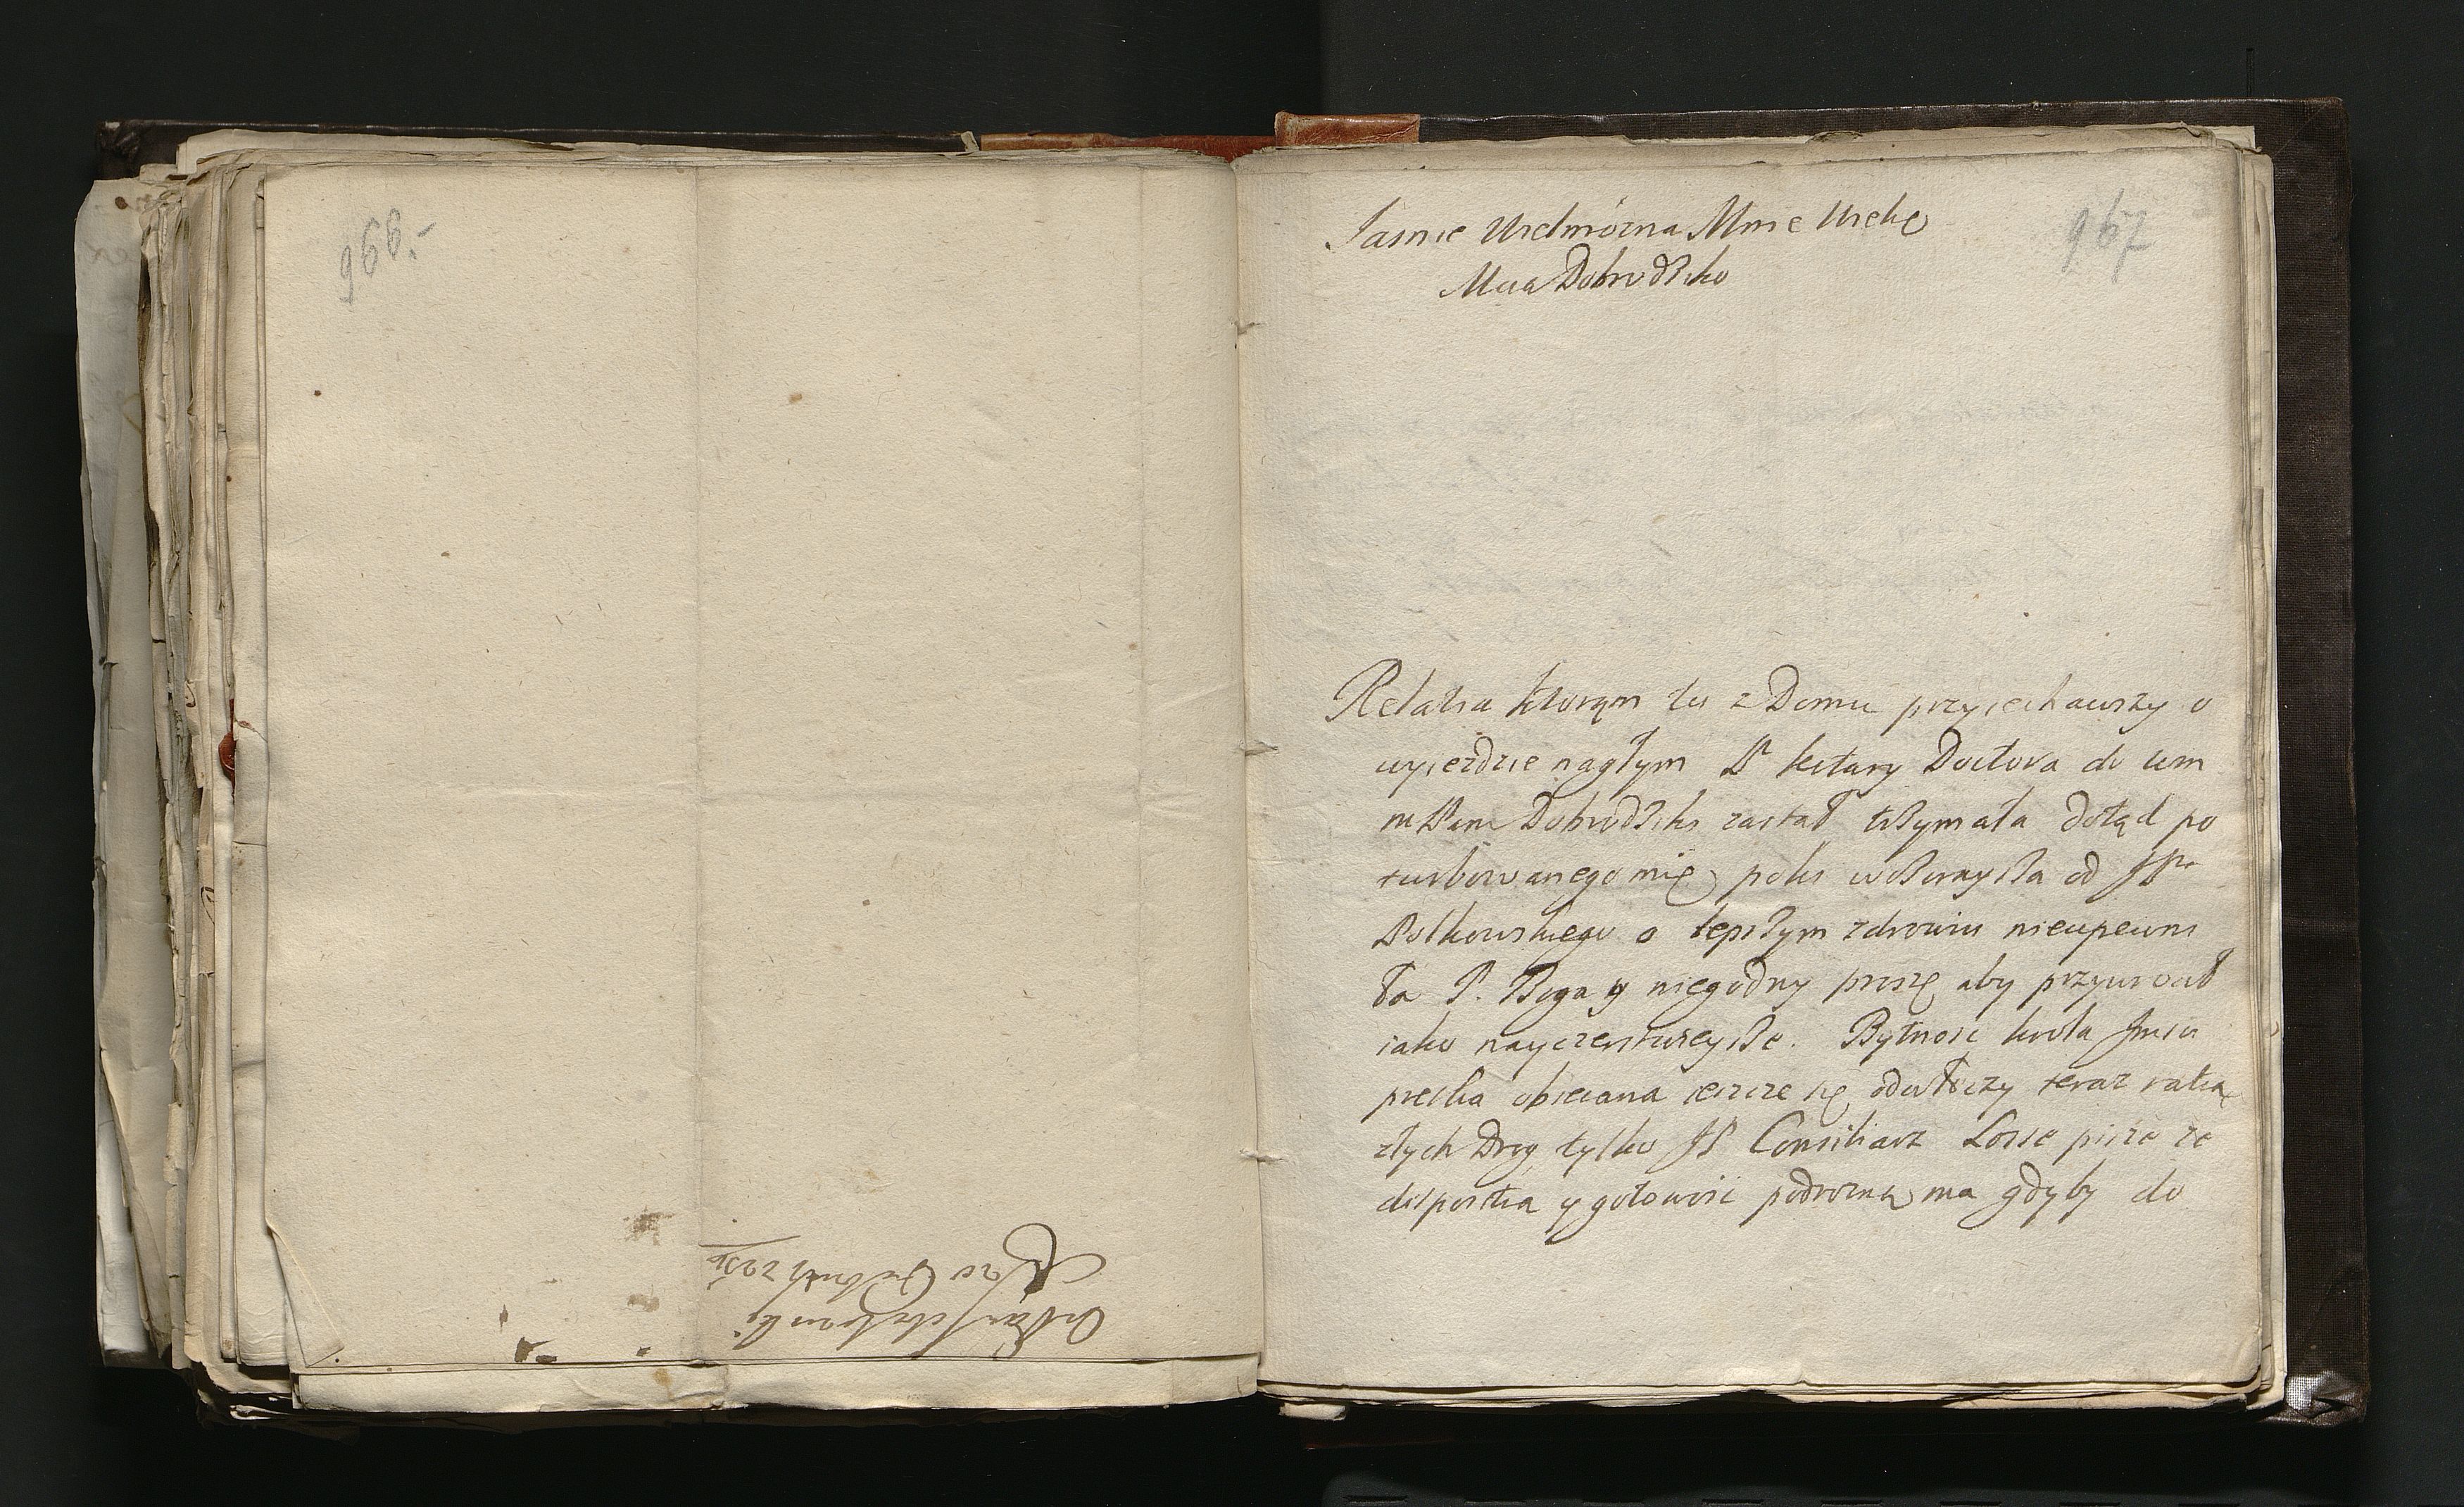 966.
967
Jasnie Wielmozna Mnie Wielce
Mcia Dobrodziko
Relatia ktorąm tu z Domu przyiechawszy o
wyiezdzie nagłym P Doctora do
Dobrodziki zastał trzymała dotąd po
turbowanego mię poki wczoraysza od JP
Polkowskiego o lepszym zdrowiu nieupewni
ła P. Boga y niegodny proszę aby przywrocił
iako nayczerstwieysze. Bytnosc krola Jmsci
pretka obiecana ieszcze się odwłoczy teraz ratią
złych Drog, tylko JP Consiliarz Losse pisze ze
dispositia y gotowosc podrozną ma gdyby do